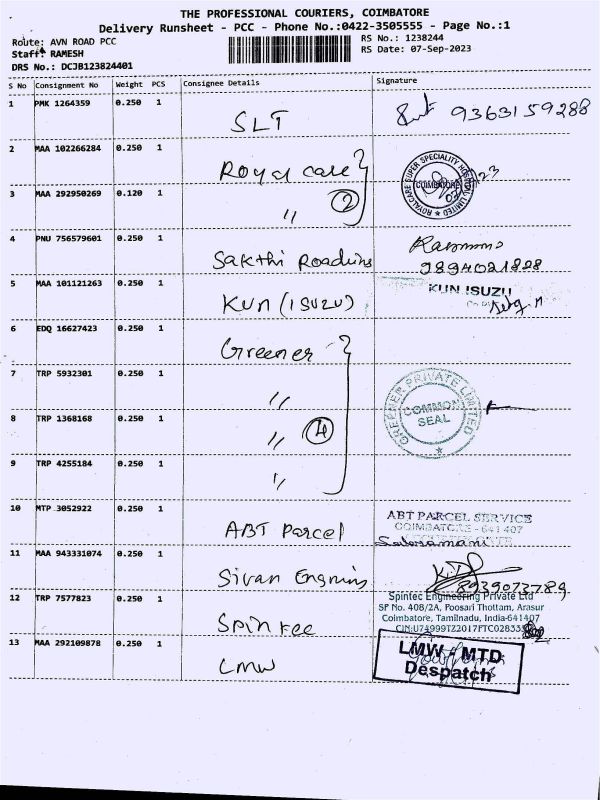 THE PROFESSIONAL COURIERS, COIMBATORE
Delivery Runsheet - PCC - Phone No.:0422-3505555 - Page No.:1
Route: AVN ROAD PCC
RS No.: 1238244
Staff: RAMESH
RS Date: 07-Sep-2023
DRS No.: DCJB123824401
S No Consignment No Weight PCS Consignee Details Signature
1 PMK 1264359 0.250 1 SLT 9363159288
2 MAA 102266284 0.250 1 Royal care
ROYALCARE SUPER SPECIALITY HOSPITAL LIMITED
COIMBATORE
3 MAA 292950269 0.120 1 " 2
4 PNU 756579601 0.250 1 Sakthi
9894021828
5 MAA 101121263 0.250 1 KUN (ISUZU) KUN ISUZU
6 EDQ 16627423 0.250 1 Greener
7 TRP 5932301 0.250 1 "
GREENER PRIVATE LIMITED
COMMON
SEAL
8 TRP 1368168 0.250 1 " 4
9 TRP 4255184 0.250 1 "
10 MTP 3052922 0.250 1 ABT Parcel ABT PARCEL SERVICE
COIMBATORE - 641 407
11 MAA 943331074 0.250 1 Sivan
8939073789
12 TRP 7577823 0.250 1 Spintee Spintec Engineering Private Ltd
SF No. 408/2A, Poosari Thottam, Arasur
Coimbatore, Tamilnadu, India-641407
13 MAA 292109878 0.250 1 LMW LMW - MTD
Despatch